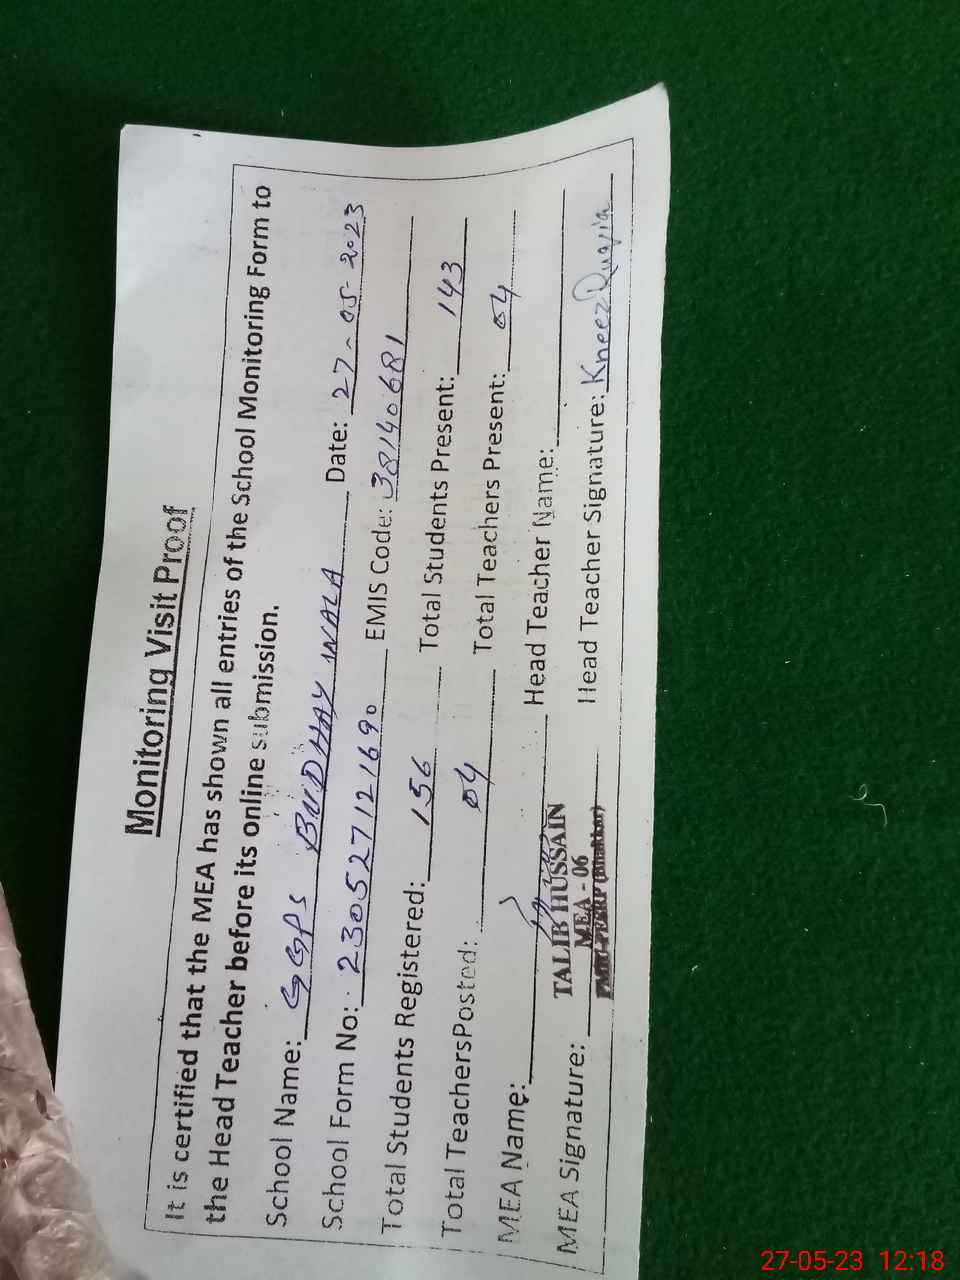 Monitoring Visit Proof
It is certified that the MEA has shown all entries of the School Monitoring Form to
the Head Teacher before its online submission.
School Name: GGPS BUDHAY WALA Date: 27-05-2023
School Form No: 230527121690 EMIS Code: 38140681
Total Students Registered: 156 Total Students Present: 143
Total TeachersPosted: 04 Total Teachers Present: 04
MEA Name: Head Teacher Name:
TALIB HUSSAIN
MEA - 06
MEA Signature: Head Teacher Signature: Kneez Ruqyia
(Bhakkar)
27-05-23 12:18